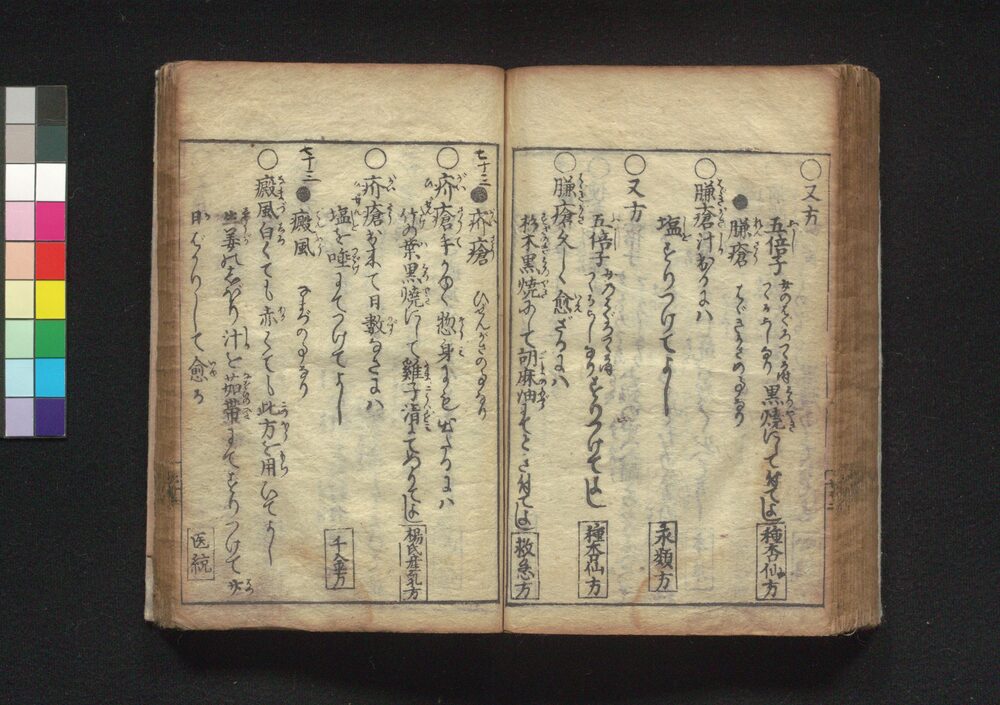 ○又方
五倍子 黒焼にして付てよし 種杏仙方
臁瘡 はゞきがさの事なり
○臁瘡汁出るにハ
塩をすりつけてよし 衆類方
○又方
五倍子 すりつけてよし 種杏仙方
○臁瘡久しく愈ざるにハ
杉木黒焼にして胡麻油にてとき付てよし 救急方
七十二 疥瘡 ひぜんがさの事なり
○疥瘡手かゆく惣身にも出たるにハ
竹の葉黒焼にして雞子清にてぬりてよし 楊氏産乳方
○疥瘡出来て日数なきにハ
塩を唾にてつけてよし 千金方
七十三 癜風 なまづの事なり
○癜風白くても赤くても此方を用ひてよし
生姜のしぼり汁を茄蔕にてすりつけて
日ばかりして愈る 医統